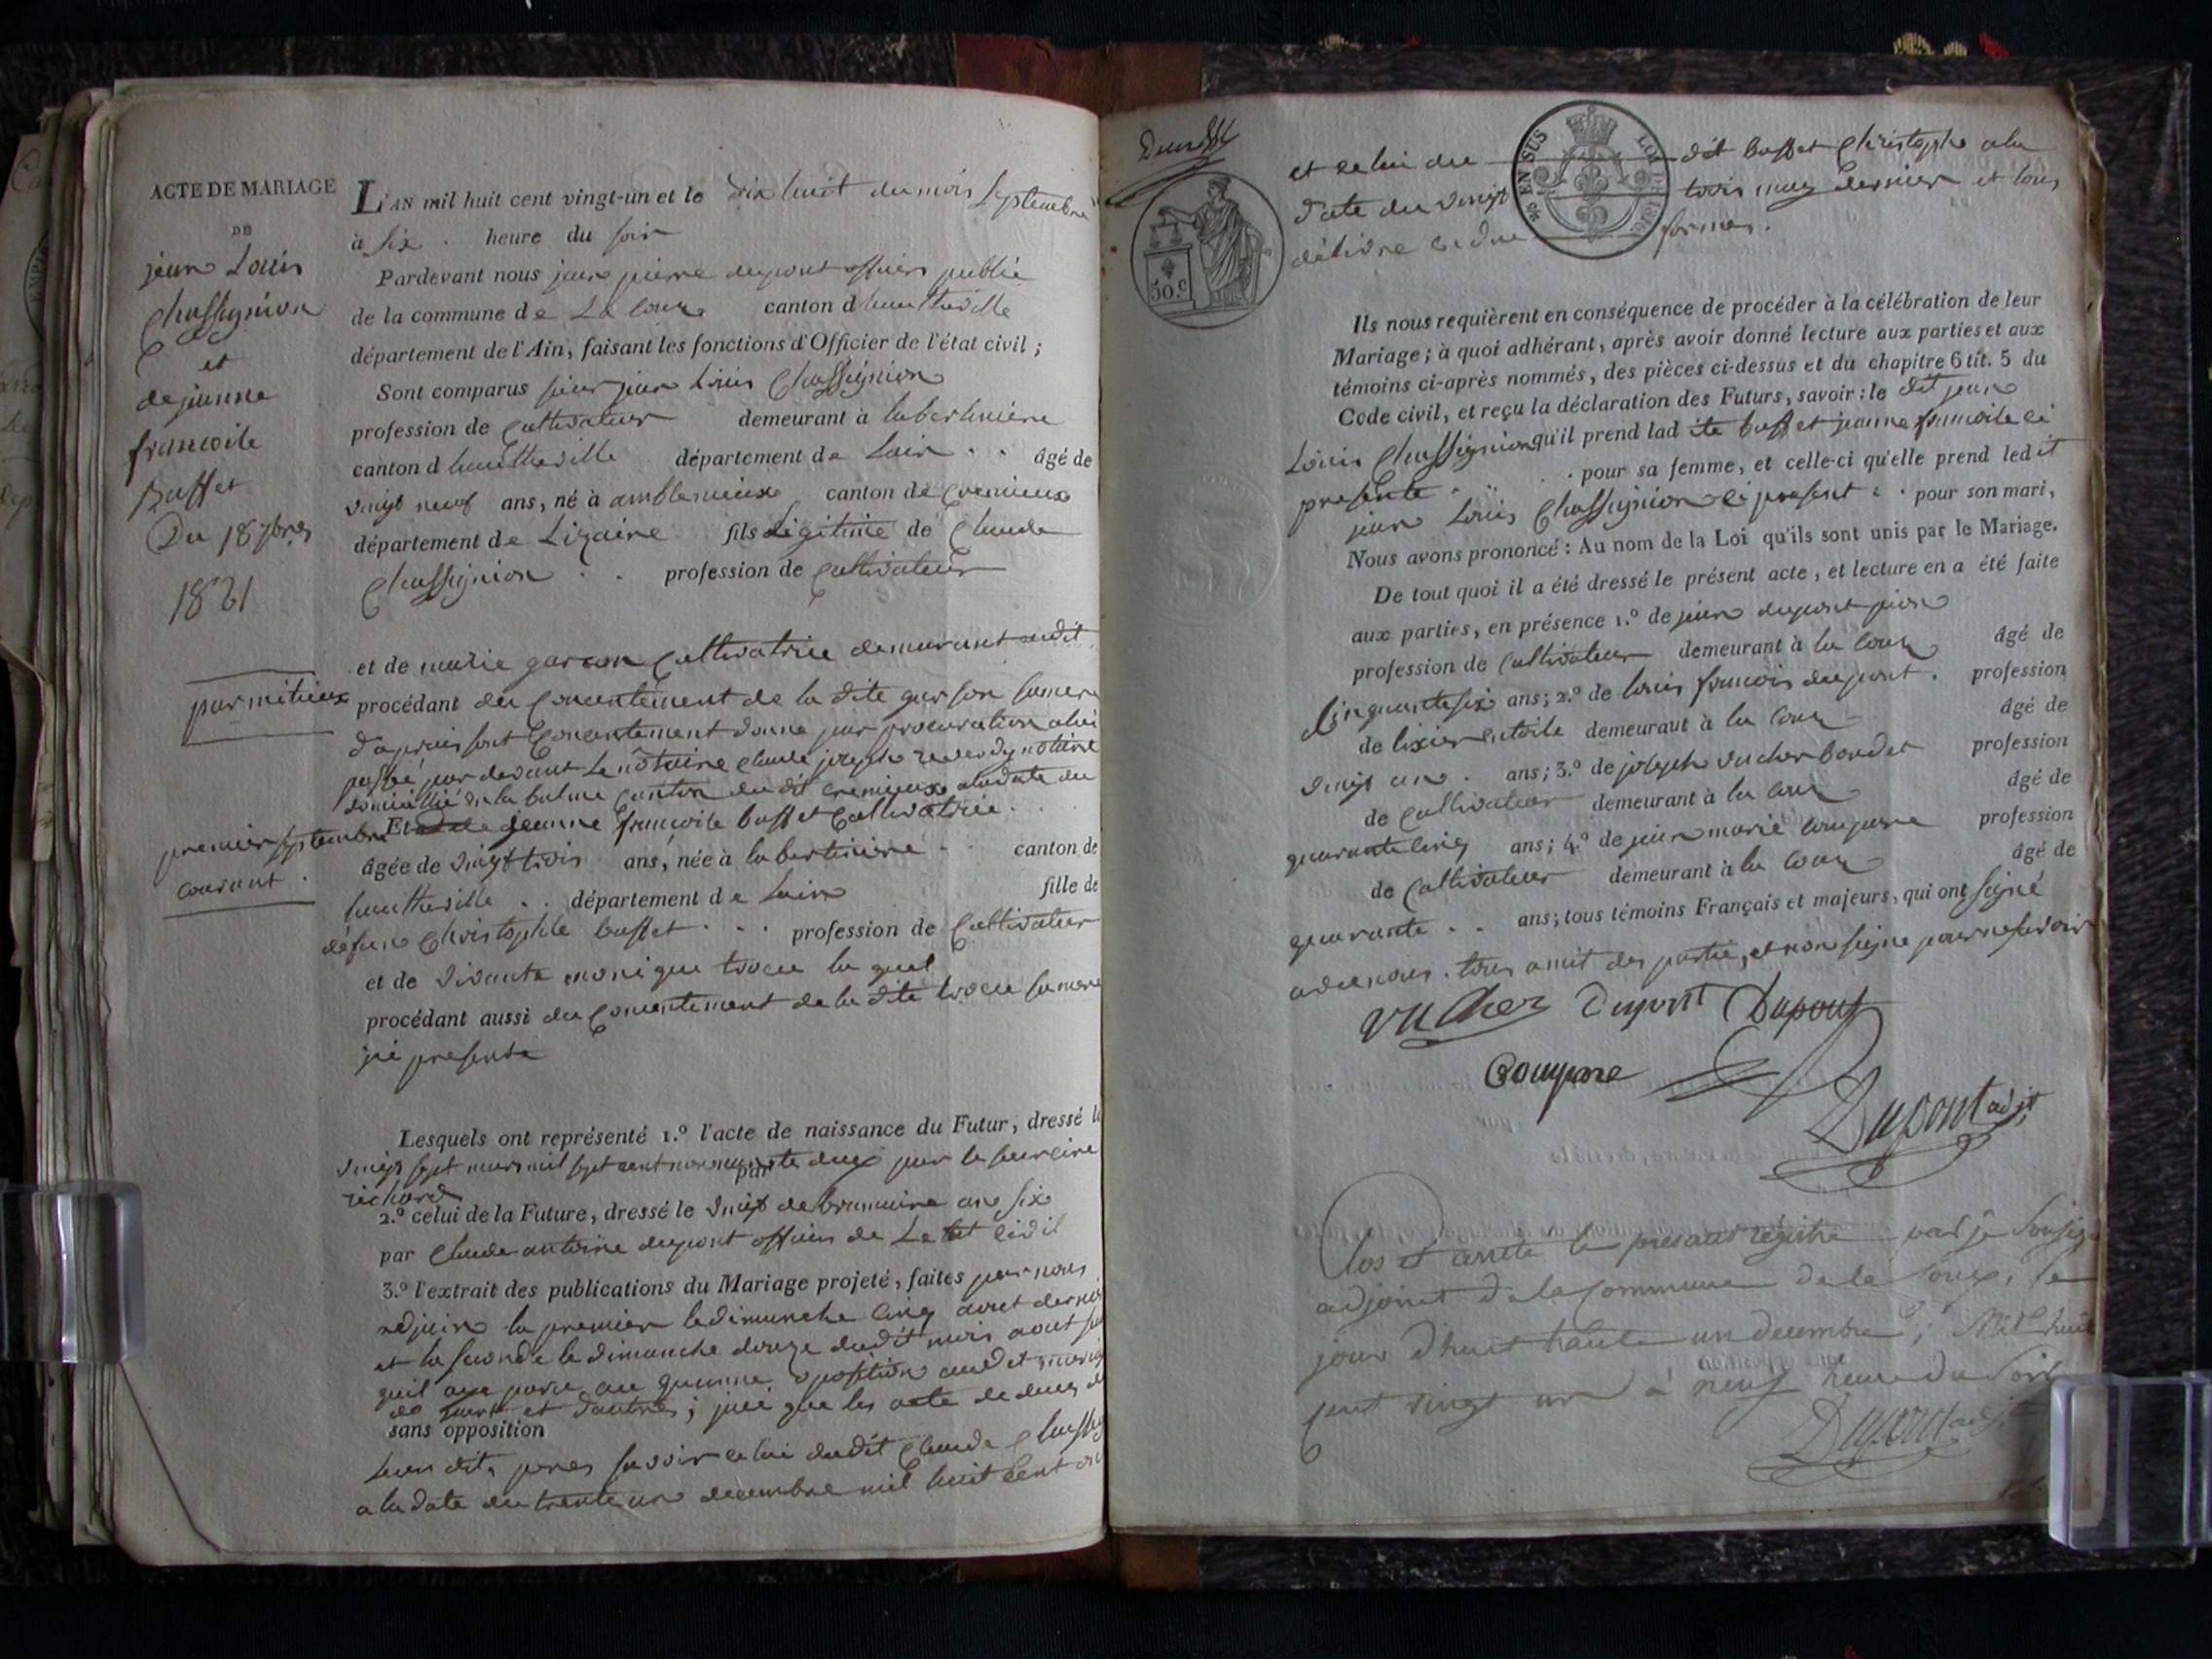 ACTE DE MARIAGE
DE
jean Louis
Chassignion
et
de jeanne
francoise
Buffet
Du 18 7bres
1821
L'AN mil huit cent vingt-un et le dix huit du mois Septembre
à six heure du soir
Pardevant nous jean pierre dupont officier public
de la commune de La coux canton d hautheville
département de l'Ain, faisant les fonctions d'Officier de l'état civil ;
Sont comparus sieur jean Louis Chassignion
profession de Cultivateur demeurant à laberliniere
canton d hautheville département de Lain âgé de
vingt neuf ans, né à amblanieux canton de Cremieux
département de Lizaire fils Légitime de Claude
Chassignion profession de Cultivateur
et de marie garson Cultivatrice demurant audit
parmilieux
procédant du Concentement de la dite garson sa mere
d'apprais sont Concentement donne par procuration a lui
passé par devant Le nôtaire Claude joseph notaire
domicillié de la balme Canton du dit Cremieux aladate du
premier septembre
courant .
Et jeanne francoise buffet Cultivatrice
âgée de vingt trois ans, née à la bertiniere canton de
hautheville département de Lain fille de
défunt Christophle buffet profession de Cultivateur
et de vivante monique trocu la quel
procédant aussi du Concentement de la dite trocu sa mere
ici presente
Lesquels ont représenté 1.º l'acte de naissance du Futur, dressé le
vingt sept mars mil sept cent nonnante deux par le
par
richard
2.º celui de la Future, dressé le vingt de brumaire an six
par Claude antoine dupont officier de Letat Civil
3.º l'extrait des publications du Mariage projeté, faites par nous
adjoin la premier le dimanche cinq aout dernier
et la seconde le dimanche douze dudit mois aout
quil aye paru au quunne opposition audit
et dautres ; que les acte de deces
sans opposition
leur dit, peres savoir celui dudit Claude
a la date du trente un decembre mil huit Cent
et celui du dit buffet Christophe a la
date du vingt trois may dernier et tous
délivré en due formes.
EN SUS
LOI
1816
50.c
Ils nous requièrent en conséquence de procéder à la célébration de leur
Mariage ; à quoi adhérant, après avoir donné lecture aux parties et aux
témoins ci-après nommés, des pièces ci-dessus et du chapitre 6 tit. 5 du
Code civil, et reçu la déclaration des Futurs, savoir : le dit jean
Louis Chassignion qu'il prend lad ite buffet jeanne francoise ci
presente pour sa femme, et celle-ci qu'elle prend ledit
jean Louis Chassignion ci present pour son mari,
Nous avons prononcé : Au nom de la Loi qu'ils sont unis par le Mariage.
De tout quoi il a été dressé le présent acte, et lecture en a été faite
aux parties, en présence 1.º de jean dupont
profession de Cultivateur demeurant à la Coux âgé de
Cinquante six ans ; 2.º de louis francois dupont . profession
de demeurant à la Coux âgé de
vingt un ans ; 3.º de joseph vucher boudet profession
de Cultivateur demeurant à la Coux âgé de
quarante cinq ans ; 4.º de jean marie compare profession
de Cultivateur demeurant à la Coux âgé de
quarante ans ; tous témoins Français et majeurs, qui ont signé
avec nous . tous amit des partie, et non signe pour ne savoir
vucher Dupont Dupont
Compare
Dupont adjt
Clos et arreté le presant régistre par je
adjoint de la Commune de la Coux, le
jour d'huit trante un decembre, Mil huit
cent vingt un à neuf heure du Soir
Dupont adjt